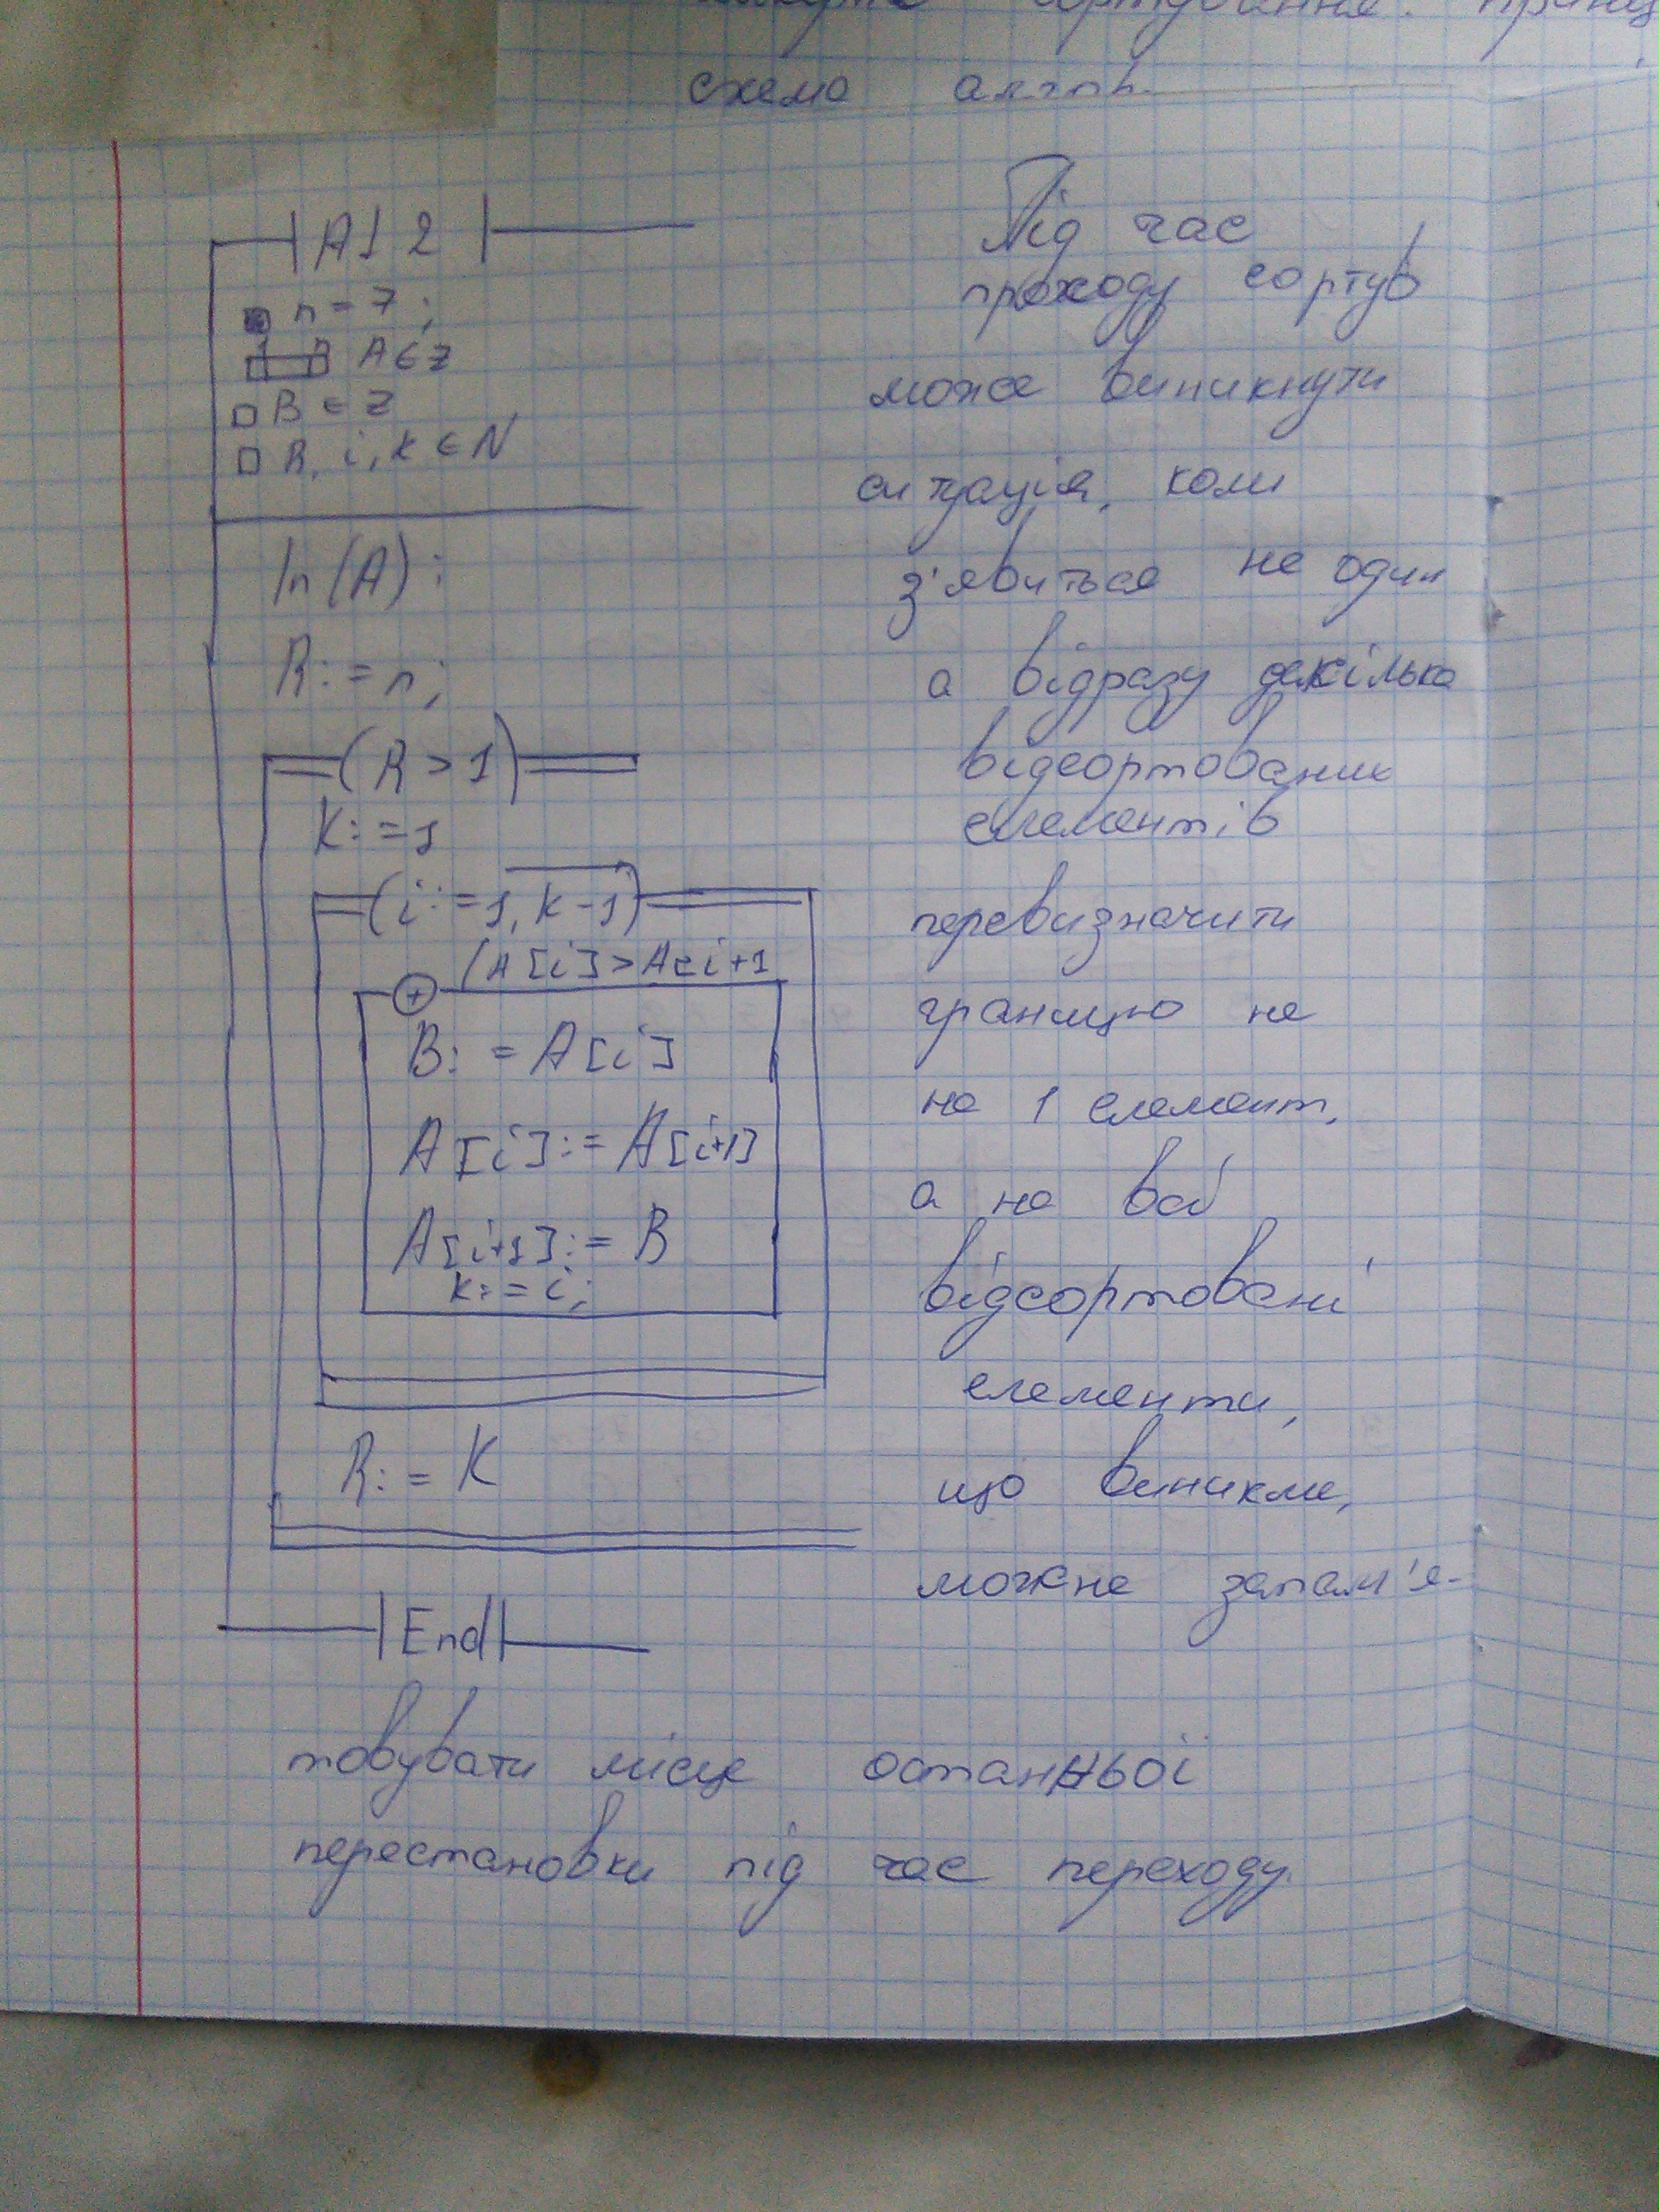 схема
A1 2
n = 7;
1 n A ∈ Z
B ∈ Z
R, i, k ∈ N
In(A):
R: = n;
(R > 1)
K: = 1
(i: = 1, k - 1)
(A[i] > A[i+1
+
B: = A[i]
A[i]: = A[i+1]
A[i+1]: = B
k: = i;
R: = K
End
Під час
проходу сортув
може виникнути
ситуація, коли
з'явиться не один
а відразу декілька
відсортованих
елементів
перевизначити
границю не
на 1 елемент,
а на всі
відсортовані
елементи,
що виникли,
можна запам'я-
товувати місце останньої
перестановки під час переходу.